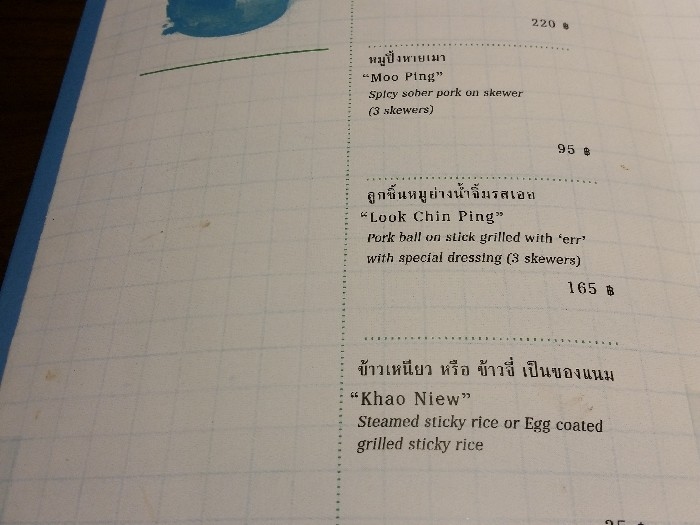 220 ฿
หมูปิ้งหายเมา
“Moo Ping”
Spicy sober pork on skewer
(3 skewers)
95 ฿
ลูกชิ้นหมูย่างน้ำจิ้มรสเอย
“Look Chin Ping”
Pork ball on stick grilled with ‘err’
with special dressing (3 skewers)
165 ฿
ข้าวเหนียว หรือ ข้าวจี่ เป็นของแนม
“Khao Niew”
Steamed sticky rice or Egg coated
grilled sticky rice